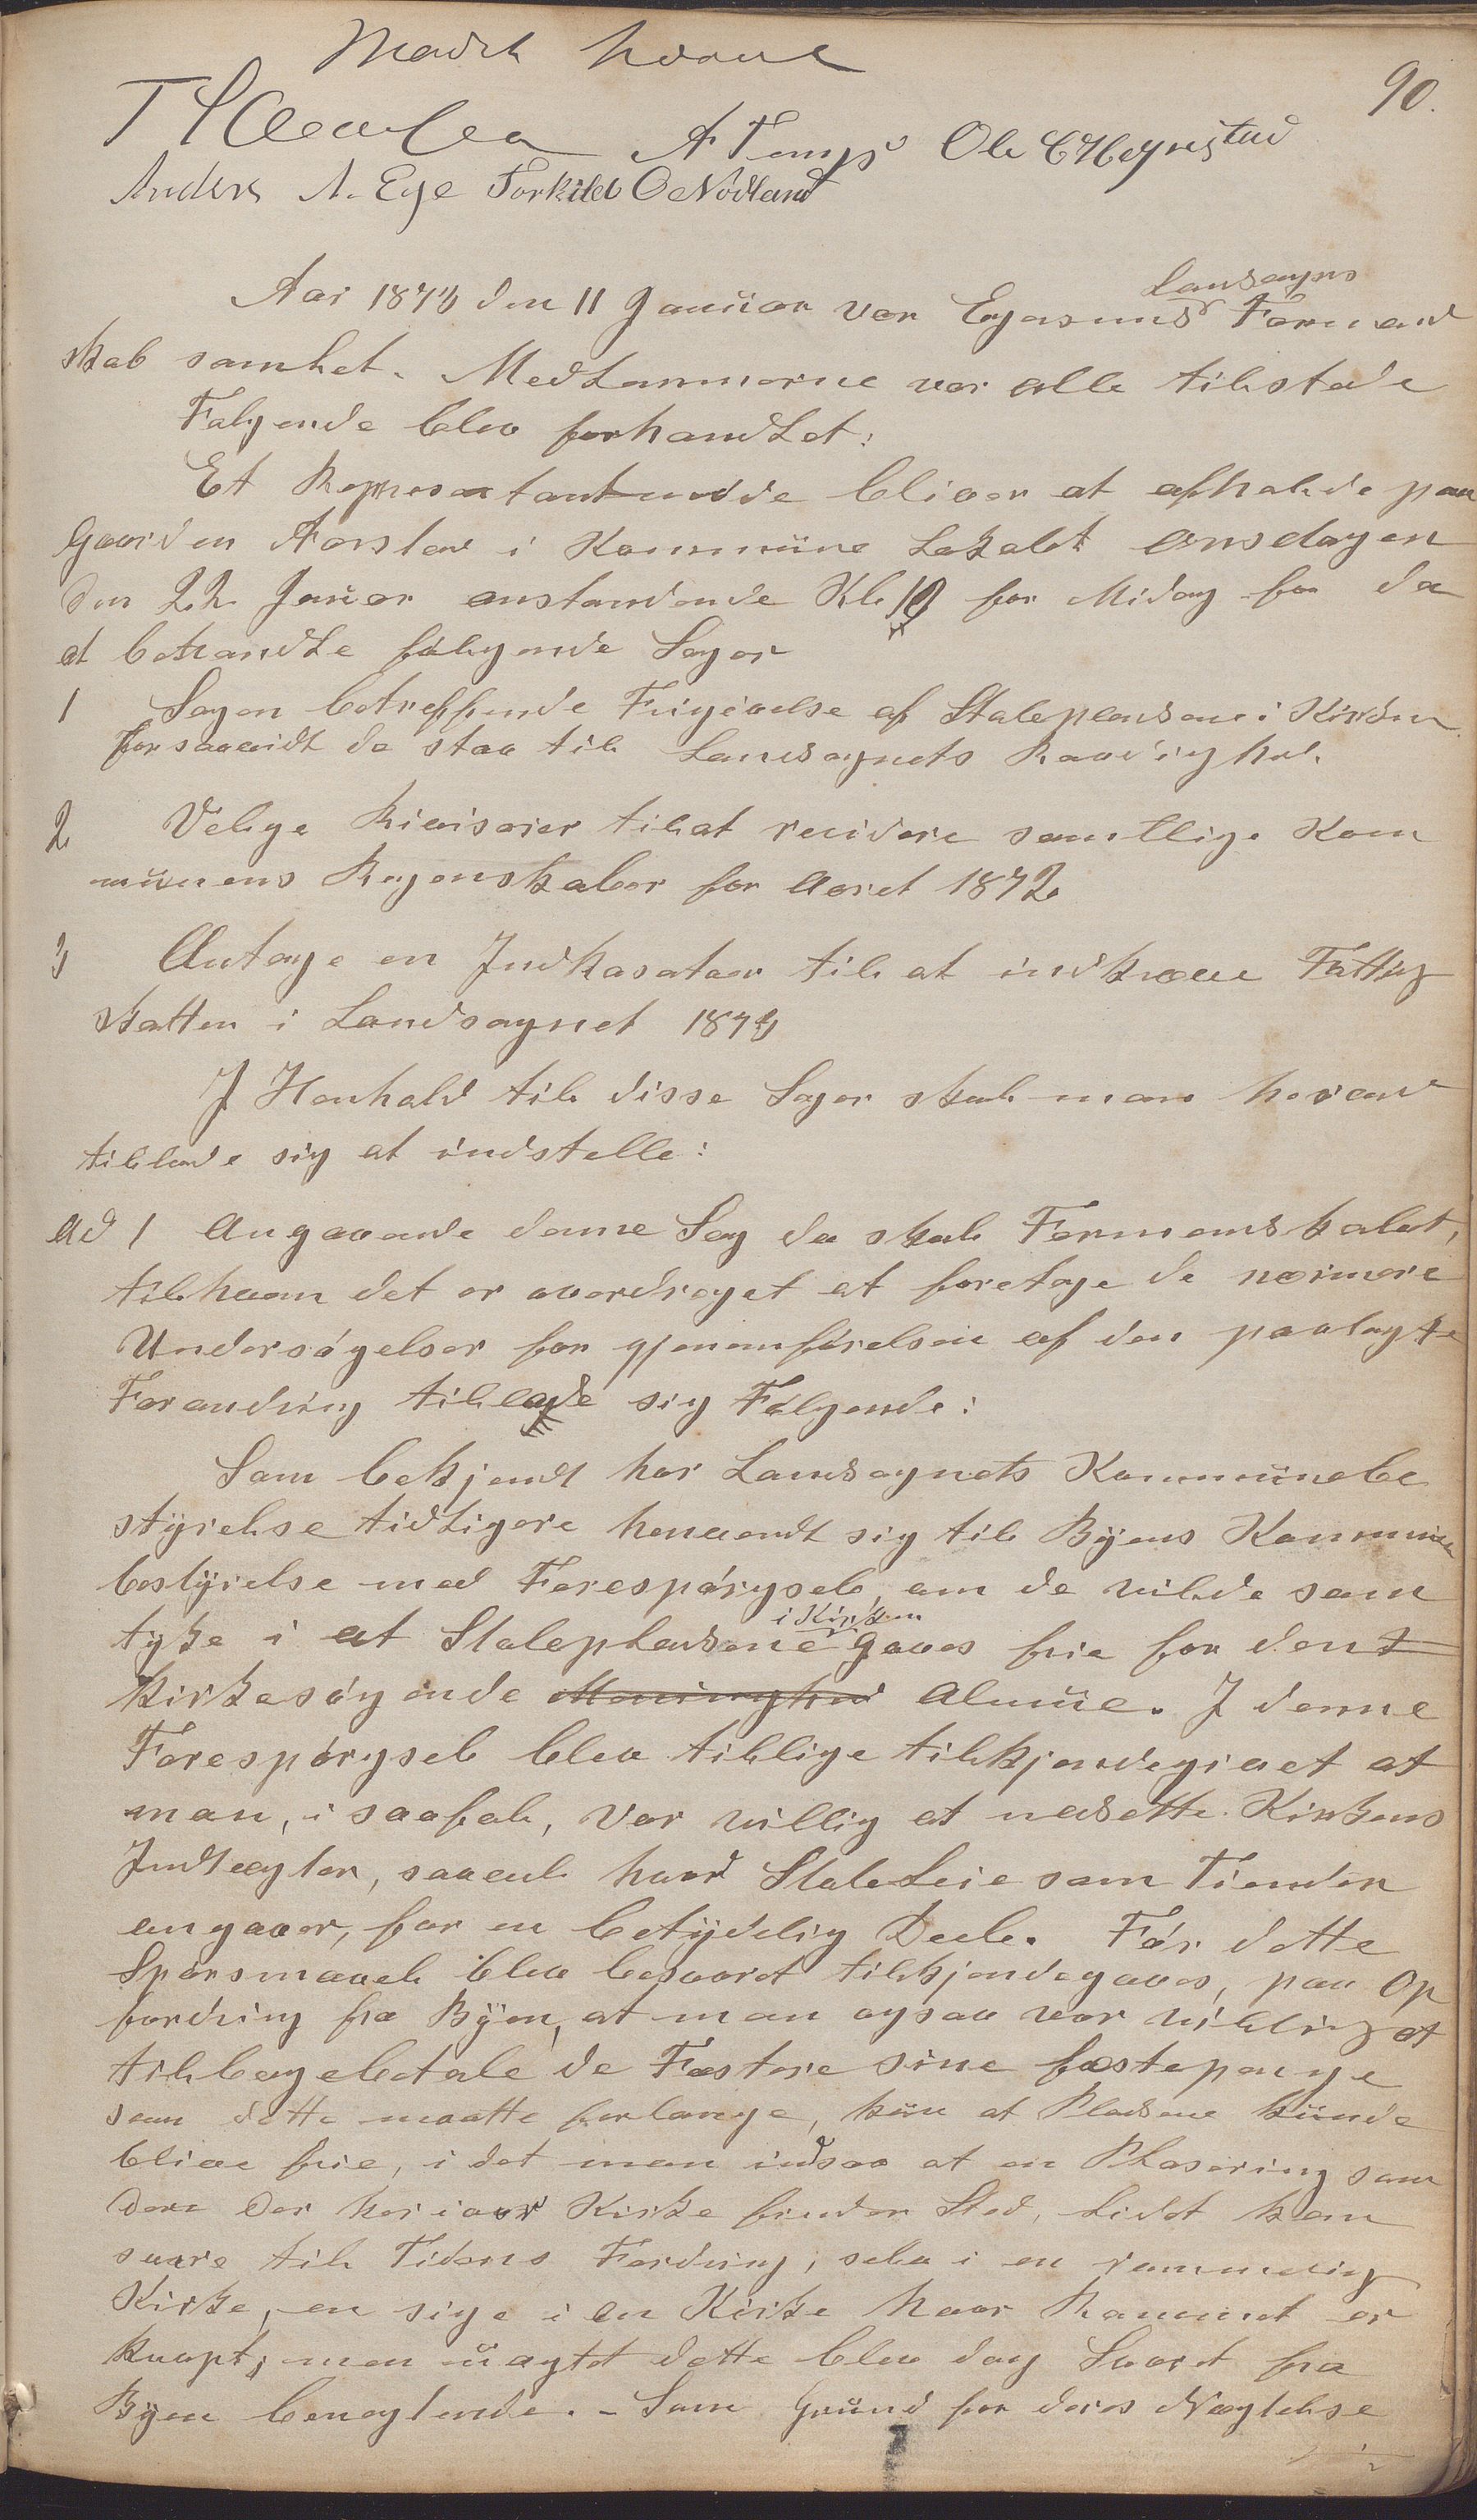 90.
A Tengs Ole C Høgnestad
Anders A. Ege Torkild O Nodland
Aar 1873 den 11 Januar var Egersunds Landsogns Formand
skab samlet. Medlemmerne var alle tilstede
Følgende blev forhandlet:
Et Repræsentantmøde bliver at afholde paa
Gaarden Aarstad i Kommune Lokalet onsdagen
den 22 Januar anstundende Kl 10 for Midag for da
at behandle følgende Sager
1 Sagen betreffende Frigivelse af Stolepladsene i Kirken
forsaavidt de staa til Landsognets Raadighed.
2 Velge Rievisorer til at revidere samtlige Kom
munens Regenskaber for Aaret 1872
3 Antage en Indkasator til at indkræve Fattig
skatten i Landsognet 1873
I Henhold til disse Sager skal man herved
tillade sig at indstelle:
Ad 1 Angaaende denne Sag da skal Formandskabet,
tilhvem det er overdraget at foretage de nærmere
Undersøgelser for gjenemførelsen af den paatagte
Forandring tillade sig Følgende:
Som bekjendt har Landsognets Kommunebe
styrelse tidligere henvendt sig til Byens Kommune
bestyrelse med Forespørgsel, om de vilde sam
tyke i at Stolepladsene i Kirken gaves frie for den
kirkesøgende Menninghed Almue. I denne
Forespørgsel blev tillige tilkjendegivet at
man, i saafald, var villig at nedsette Kirkens
Indtægter, saavel hvad StoleLeie som Tienden
angaaer, for en betydelig Deel. Før dette
Spørsmaal blev besvaret tilkjendegaves, paa Op
fordring fra Byen, at man ogsaa var villig at
tilbagebetale de Festere sine festepenge
som dette maatte forlange, kun at Pladsene kunde
blive frie, i det man indsaa at en Plasering som
den der her i vor Kirke finder Sted, lidet kan
svare til Tidens Fordring, selv i en rummelig
Kirke, en sige i en Kirke hvor Rummet er
knapt; men uagtet dette blev dog Svaret fra
Byen benegtende. - Som Grund for deres Nægtelse